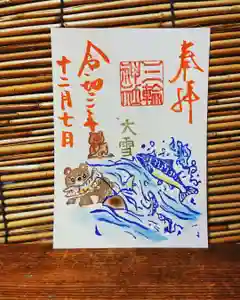 奉拝
三輪
神社
大雪
令和二年
十二月七日